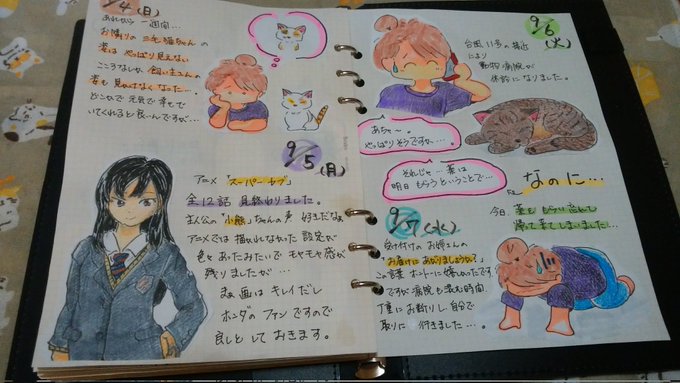 9/4(日)
あれから一週間…
お隣りの三毛猫ちゃんの
姿はやっぱり見えない
こころなしか、飼い主さんの
姿も見かけなくなった…。
どこかで元気で幸せで
いてくれると良いんですが…
9/5(月)
アニメ「スーパーカブ」
全12話見終わりました。
主人公の「小熊」ちゃんの声好きだなぁ
アニメでは描かれなかった設定が
色々あったみたいでモヤモヤ感が
残りましたが…
まぁ画はキレイだし
ホンダのファンですので
良しとしておきます。
9/6(火)
台風11号の接近
により
動物病院が
休診になりました。
あちゃ〜。
やっぱりそうですか…。
それじゃ…薬は
明日もらうということで…
なのに…
9/7(水)
今日、薬をもらい忘れて
帰って来てしまいました…
受け付けのお姉さんの
「お届けにあがりましょうか?」
この言葉ホントーに嬉しかったです
ですが病院も混む時間
丁重にお断りし、自分で
取りに行きました…。